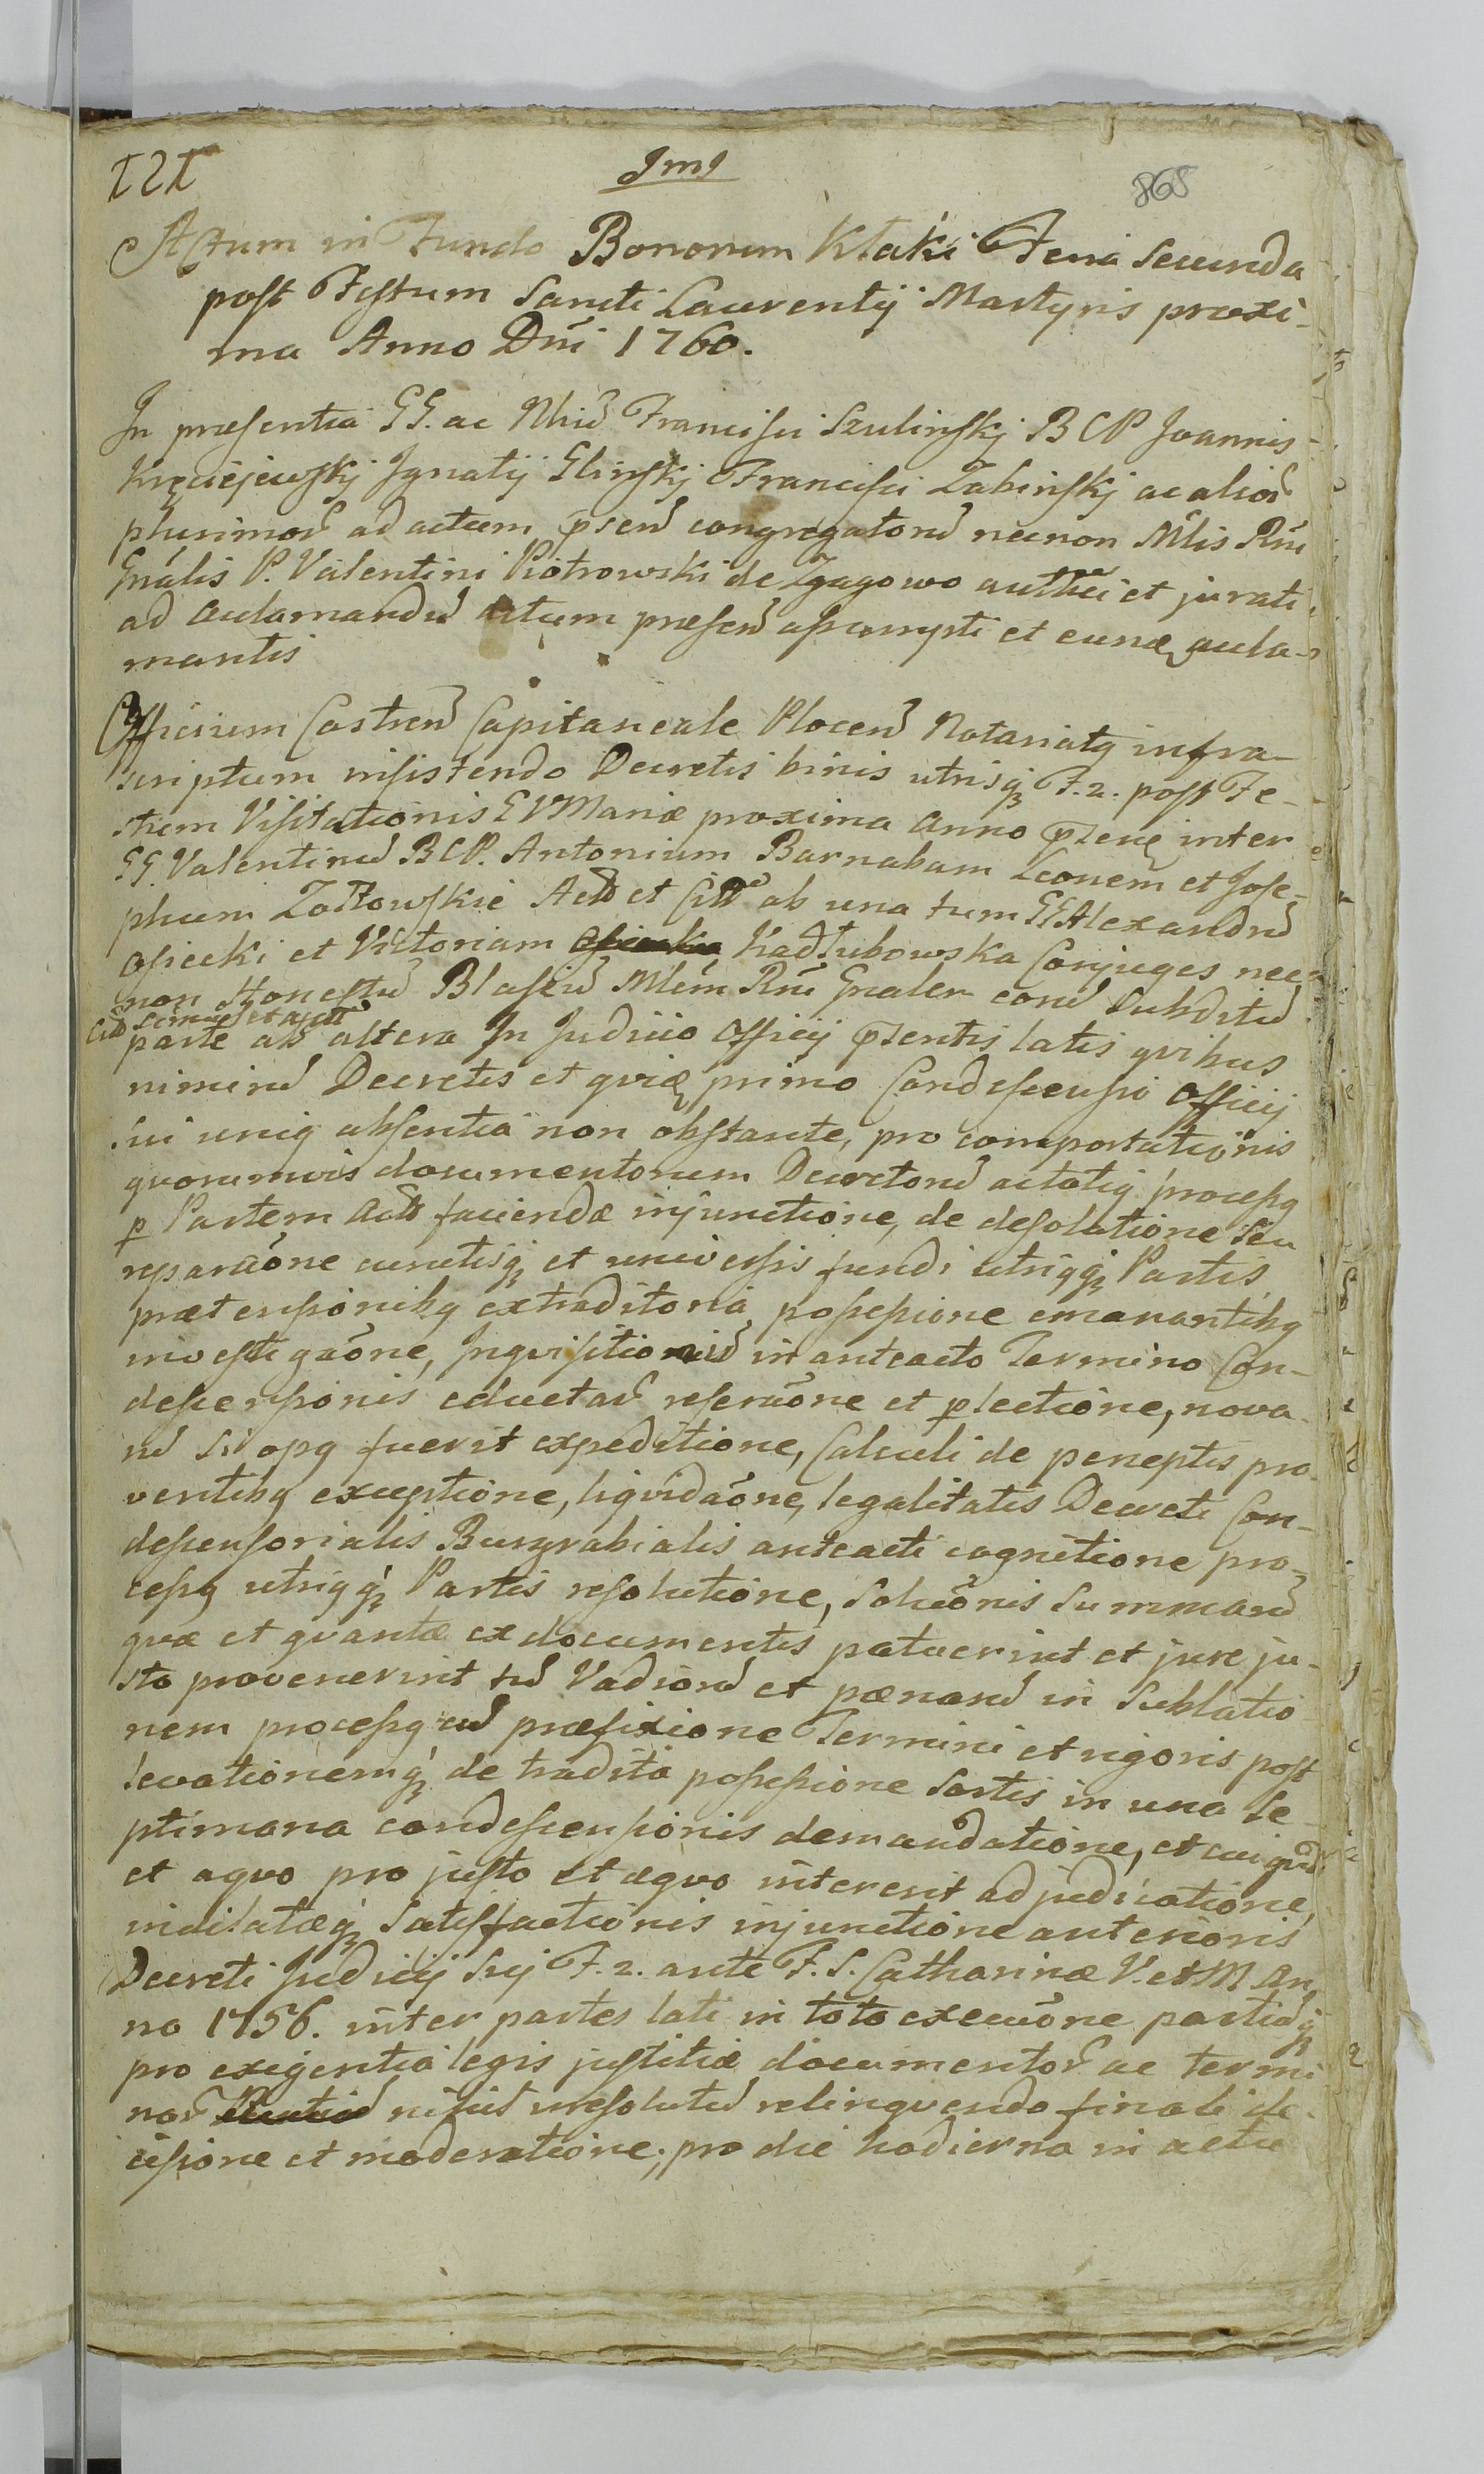 JmJ
868
Actum in Fundo Bonorum Kłaki Feria Secunda
post Festum Sancti Laurentij Martyris proxi-
ma Anno Dni 1760.
In præsentia GG. ac Nbiū Francisci Szulinskj BCP Joannis
Ignatij Glinskj Francisci Zabinskj ac alior
plurimor ad actum psen congregator necnon Mlis Rni
Gnalis P. Valentini Piotrowski de Zgagowo authci et jurati
ad acclamandū actum præsen assumpti et eundq accla-
mantis
Officium Castren Capitaneale Plocen Notariatq infra-
scriptum insistendo Decretis binis utrisq F. 2. post Fe-
stum Visitationis BVMariæ proxima Anno psenq inter
GG. Valentinū BCP. Antonium Barnabam Leonem et Jose-
phum Zołtowskie Act et Citt ab una tum GGAlexandrū
Osiecki et Victoriam Kadłubowska Conjuges nec
non Honestū Blasiū Mlem Rni Gnalem eorū Subditū
Citt simul et
parte ab altera In Judicio Officij psentis latis qvibus
nimirū Decretis et qviq primo Condescensu Officij
sui uniq absentia non obstante, pro comportationis
qvorumvis documentorum Decretorū actatiq processq
p Partem Act facienda injunctione, de desolatione seu
reparaōne cunctisq et universis fundi utriqq Partis
prætensionibq extraditoria possessione emanantibq
investigaōne, Inqvisitionū in anteacto Termino Con-
descensionis eductar reseraōne et plectione, nova-
rū si opq fuerit expeditione, Calculi de perceptis pro-
ventibq exceptione, liqvidaōne, legalitatis Decreti Con-
descensorialis Burgrabialis anteacti cognitione pro-
cessq utriqq Partis resolutione, Soluōnis Summarū
qvæ et qvantæ ex documentis patuerint et jure ju-
sto provenerint sū Vadiorū et pænarū in Sublatio-
nem processq cū præfixione Termini et rigoris post
levationemq de tradita possessione Sortis in una Se-
ptimana condescensionis demandatione, et cuiqvid
et aqvo pro justo et æqvo intererit adjudicatione,
indilatæq Satisfactionis injunctione anterioris
Decreti Judicij Sui F. 2. ante F. S. Catharinæ V. et M. An-
no 1756. inter partes lati in toto execuōne partiūq
pro exigentia legis justitiæ documentor ac termi
nor nihil irresolutū relinqvendo finali de-
cisione et moderatione; pro die hodierna in actu